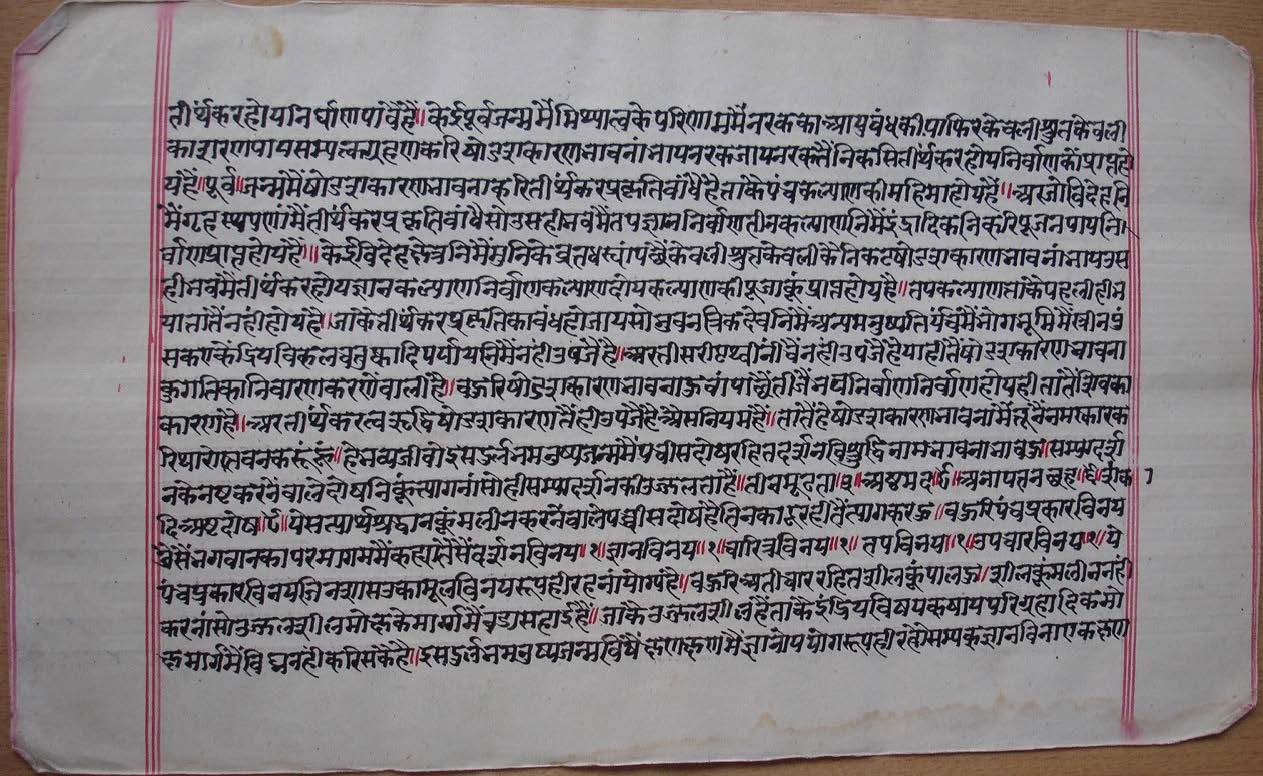 तीर्थंकर होय निर्वाण पावै है॥ केई पूर्वजन्ममैं मिथ्यात्वके परिणाममैं नरकका आयु बंध की पाछिर केवली श्रुतकेवली
का शरण पाय सम्यक्त्व ग्रहण करि षोडशकारण भावनां भाय नरक जाय नरकतैं निकसि तीर्थंकर होय निर्वाणकों प्राप्त हो
य है॥ पूर्व जन्ममैं षोडशकारण भावना करि तीर्थंकर प्रकृति बांधै है तांके पंचकल्याणकी महिमा होय है॥ अर जो विदेहनि
मैं गृहस्थपणांमैं तीर्थंकर प्रकृति बांधै सो उसही भवमैं तप ज्ञान निर्वाण तीन कल्याणनिमैं इंद्रादिकनिकरि पूजन पाय नि
र्वाण प्राप्त होय है॥ केई विदेह क्षेत्रनिमैं मुनिके व्रत धर्यां पछैं केवली श्रुतकेवलीकै निकट षोडशकारण भावनां भाय उस
ही भवमैं तीर्थंकर होय ज्ञानकल्याण निर्वाणकल्याण दोय कल्याणकी पूजाकूं प्राप्त होय है॥ तपकल्याण तांकै पहली ही भ
या तातैं नहीं होय है॥ जांकै तीर्थंकर प्रकृतिका बंध हो जाय सो भुवनत्रिक देवनिमैं अन्य मनुष्य तिर्यंचमैं भोगभूमिमैं स्त्री नपुं
सक एकेंद्रिय विकल चतुष्कादि पर्यायनिमैं नहीं उपजै है॥ अर तीसरी पृथ्वी नीचै नहीं उपजै है याही तैं षोडशकारण भावना
कुगतिका निवारण करणेवाली है॥ बहुरि षोडशकारण भावना हुवां पाछैं तीजै भव निर्वाण होय ही तातैं शिवका
कारण है॥ अर तीर्थंकरत्व ऋद्धि षोडशकारणतैं ही उपजै है ऐसा नियम है॥ तातैं हे षोडशकारण भावना मैं तूनैं नमस्कार क
रि थारो स्तवन करूं हूं॥ हे भव्य जीवो इस दुर्लभ मनुष्य जन्ममैं पचीस दोषरहित दर्शनविशुद्धि नाम भावना भावहु॥ सम्यग्दर्श
नके नष्ट करनेवाले दोषनिकूं त्यागनां सो ही सम्यग्दर्शनकी उज्जलता है॥ तीन मूढता॥३॥ अष्टमद॥८॥ अनायतन छह॥६॥ शंका
दि अष्ट दोष॥८॥ ये सत्यार्थ श्रद्धानकूं मलीन करनेवाले पच्चीस दोष है तिनका दूरहीतैं त्याग करहु॥ बहुरि पंचप्रकार विनय
जैसैं भगवानका परमागममैं कह्या तैसैं दर्शनविनय॥१॥ ज्ञानविनय॥१॥ चारित्रविनय॥१॥ तपविनय॥१॥ उपचारविनय॥१॥ ये
पंचप्रकार विनय जिनशासनका मूल विनय रूप ही रहनां योग्य है॥ बहुरि अतीचाररहित शीलकूं पालहु॥ शीलकूं मलीन नहीं
करनां सो उज्जल शील मोक्षके मार्गमैं बडा सहाई है॥ जांकै उज्जल शील है तांकै इंद्रियविषय कषाय परिग्रहादिक मो
क्षमार्गमैं विघ्न नहीं करि सकै है॥ इस दुर्लभ मनुष्य जन्मविषैं क्षण क्षणमैं ज्ञानोपयोगरूप ही रहो सम्यक्ज्ञान विना एक क्षण